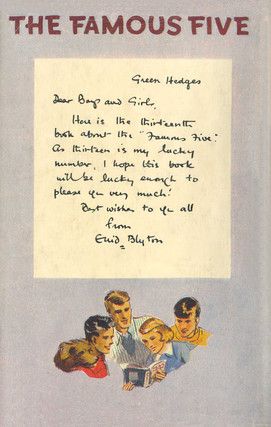 THE FAMOUS FIVE
Green Hedges
Dear Boys and Girls,
Here is the thirteenth
book about the "Famous Five".
As thirteen is my lucky
number, I hope this book
will be lucky enough to
please you very much!
Best wishes to you all
from
Enid Blyton